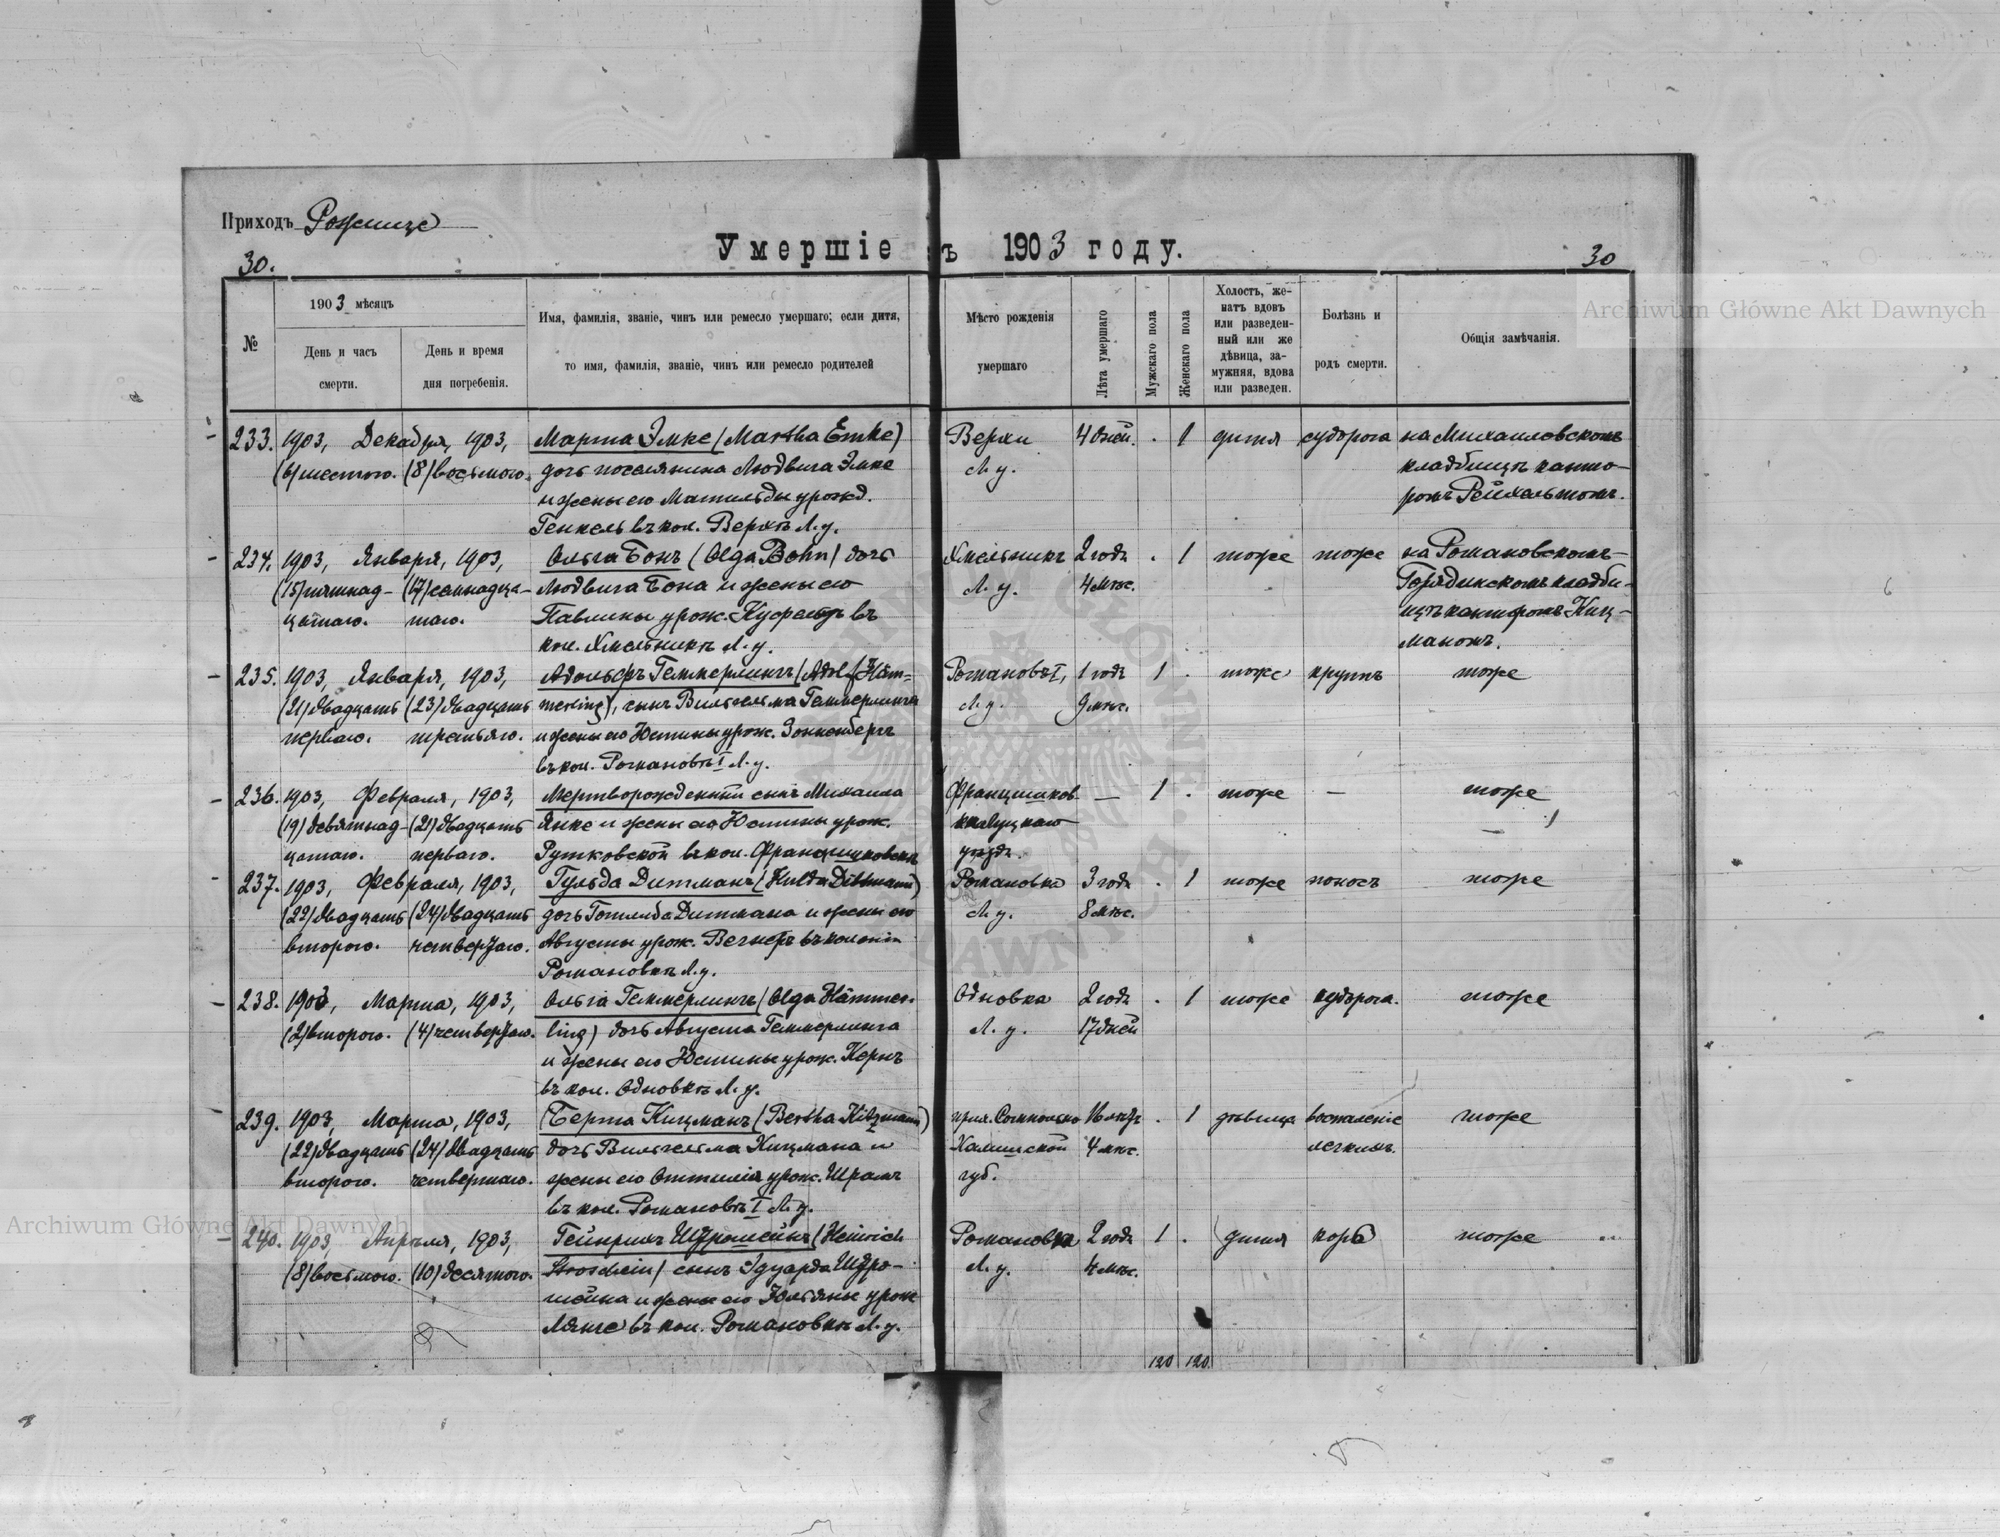 Приходъ Рожище
Умершіе въ 1903 году.
30.
30
№
1903 мѣсяцъ
День и часъ смерти.
День и время дня погребенія.
Имя, фамилія, званіе, чинъ или ремесло умершаго; если дитя,
то имя, фамилія, званіе, чинъ или ремесло родителей
Мѣсто рожденія
умершаго
Лѣта умершаго
Мужскаго пола
Женскаго пола
Холость, же-
натъ вдовъ
или разведен-
ный или же
дѣвица, за-
мужняя, вдова
или разведен.
Болѣзнь и
родъ смерти.
Общія замѣчанія.
Archiwum Główne Akt Dawnych
233. 1903, Декабря, 1903, Марта Эмке (Martha Emke) Верхи 4 дней. . 1 дитя судорога на Михаиловскомъ
(6) шестого. (8) восьмого. дочь поселянина Людвига Эмке Л. у. кладбищѣ канто-
и жены его Матильды урожд. ромъ Рейхельтомъ.
Генкель въ кол. Верхъ Л. у.
234. 1903, Января, 1903, Ольга Бонъ (Olga Bohn) дочь Хмельникъ 2 года . 1 тоже тоже на Романовскомъ-
(15) пятнад- (17) семнадца- Людвига Бона и жены его Л. у. 4 мѣс. кладби-
цатаго. таго. Павлины урож. въ щѣ канторомъ Киц-
кол. Хмельникъ Л. у. маномъ.
235. 1903, Января, 1903, Адольфъ Геммерлингъ (Adolf Häm- Романовъ I, 1 годъ 1 . тоже крупъ тоже
(21) двадцать (23) двадцать merling), сынъ Вильгельма Геммерлинга Л. у. 9 мѣс.
перваго. третьяго. и жены его Юстины урож. Зонненбергъ
въ кол. Романовъ I Л. у.
236. 1903, Февраля, 1903, Мертворожденный сынъ Михаила — 1 . тоже — тоже
(19) девятнад- (21) двадцать Янке и жены его Юстины урож. Луцкаго
цатаго. перваго. Рутковской въ кол. уѣзда.
237. 1903, Февраля, 1903, Гульда Дитманъ (Hulda Dittmann) Романовка 3 года . 1 тоже поносъ тоже
(22) двадцать (24) двадцать дочь Готлиба Дитмана и жены его Л. у. 8 мѣс.
второго. четвертаго. Августы урож. Вегнеръ въ колоніи
Романовкѣ Л. у.
238. 1903, Марта, 1903, Ольга Геммерлингъ (Olga Hämmer- Одновка 2 года . 1 тоже судорога. тоже
(2) второго. (4) четвертаго. ling) дочь Августа Геммерлинга Л. у. 17 дней
и жены его Юстины урож. Кернъ
въ кол. Одновкѣ Л. у.
239. 1903, Марта, 1903, Берта Кицманъ (Bertha Kitzmann) 16 лѣтъ . 1 дѣвица воспаленіе тоже
(22) двадцать (24) двадцать дочь Вильгельма Кицмана и Калишской 4 мѣс. легкихъ.
второго. четвертаго. жены его Оттилія урож. Шрамъ губ.
въ кол. Романовъ I Л. у.
240. 1903, Апрѣля, 1903, Гейнрихъ Штрошейнъ (Heinrich Романовка 2 года 1 . дитя корь тоже
(8) восьмого. (10) десятого. Stroschein) сынъ Эдуарда Штро- Л. у. 4 мѣс.
шейна и жены его Юльяны урож
Лянге въ кол. Романовкѣ Л. у.
120 120.
Archiwum Główne Akt Dawnych